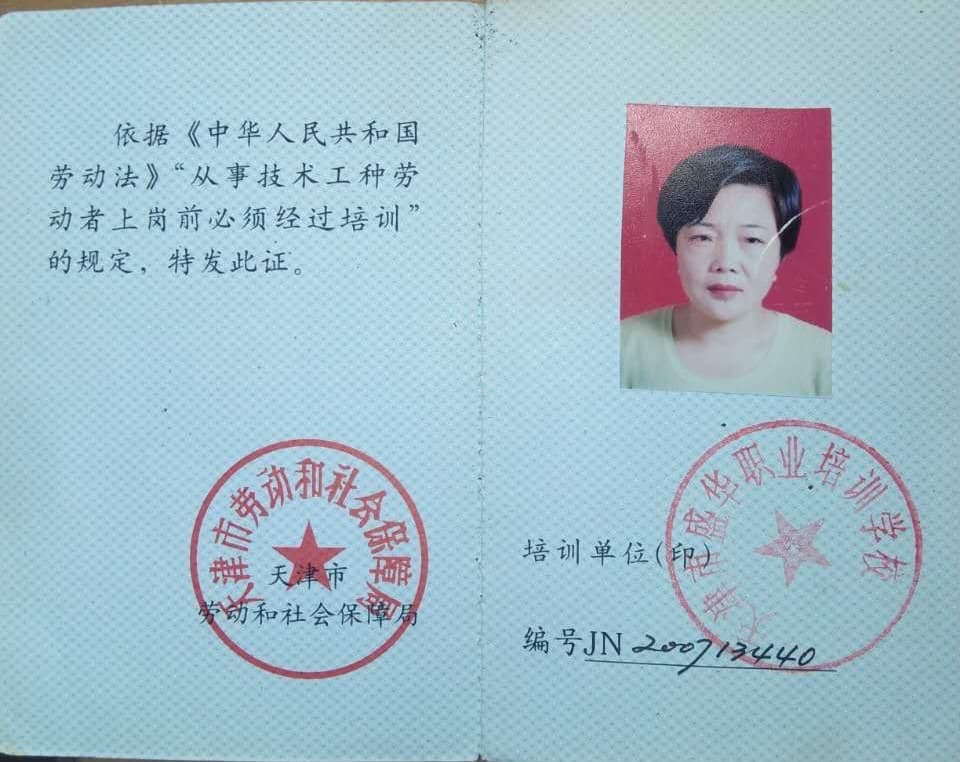 依据《中华人民共和国
劳动法》“从事技术工种劳
动者上岗前必须经过培训”
的规定，特发此证。
天津市劳动和社会保障局
天津市
劳动和社会保障局
天津市盛华职业培训学校
培训单位(印)
编号JN 200713440